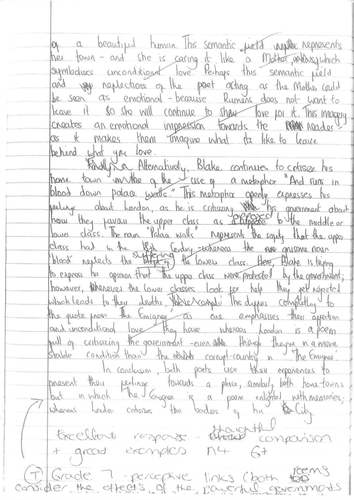 of a beautiful human. This semantic field represents
her town - and she is caring it like a Mother which
symbolises unconditional love. Perhaps this semantic field
and reflections of the poet acting as the Mother could
be seen as emotional - because Rumens does not want to
leave it so she will continue to show love for it. This imagery
creates an emotional impression towards the readers
as it makes them imagine what its like to leave
behind what you love.
Alternatively, Blake continues to criticise his
home town the use of a metaphor "And runs in
blood down palace walls". This metaphor openly expresses his
feelings about London, as he is criticising his government about
how they favour the upper class as opposed to the middle or
lower class. The noun "Palace walls" represents the safety that the upper
class had in the Century whereas the gruesome noun
blood reflects the suffering the lower class. Blake is trying
to express his opinion that the upper class were protected by the government;
however, whenever the lower classes look for help they get rejected
which leads to their deaths. This differs completely to
the quote from The Emigree as one emphasises their affection
and unconditional love they have whereas London is a poem
full of criticising the government - even though they're in a more
stable condition than the corrupt country in The Emigree.
In conclusion, both poets use their experiences to
present their feelings towards a place, similarly both home-towns
but in which The Emigree is a poem with memories;
whereas London criticises the leaders of his City.
Excellent response thoughtful comparison
+ great examples
T Grade 7 perceptive links (both poems
consider the effects of the powerful governments